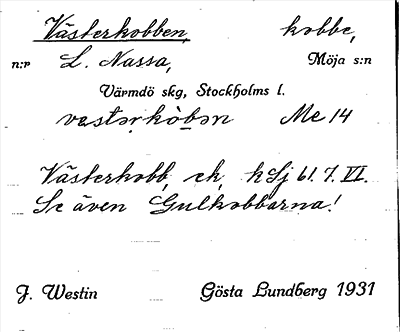 Västerkobben, kobbe,
n:r L. Nassa, Möja s:n
Värmdö skg, Stockholms l.
vestərkòbən Me 14
Västerkobb, ek, kSj 61. 7. VI.
Se även Gulkobbarna!
J. Westin Gösta Lundberg 1931